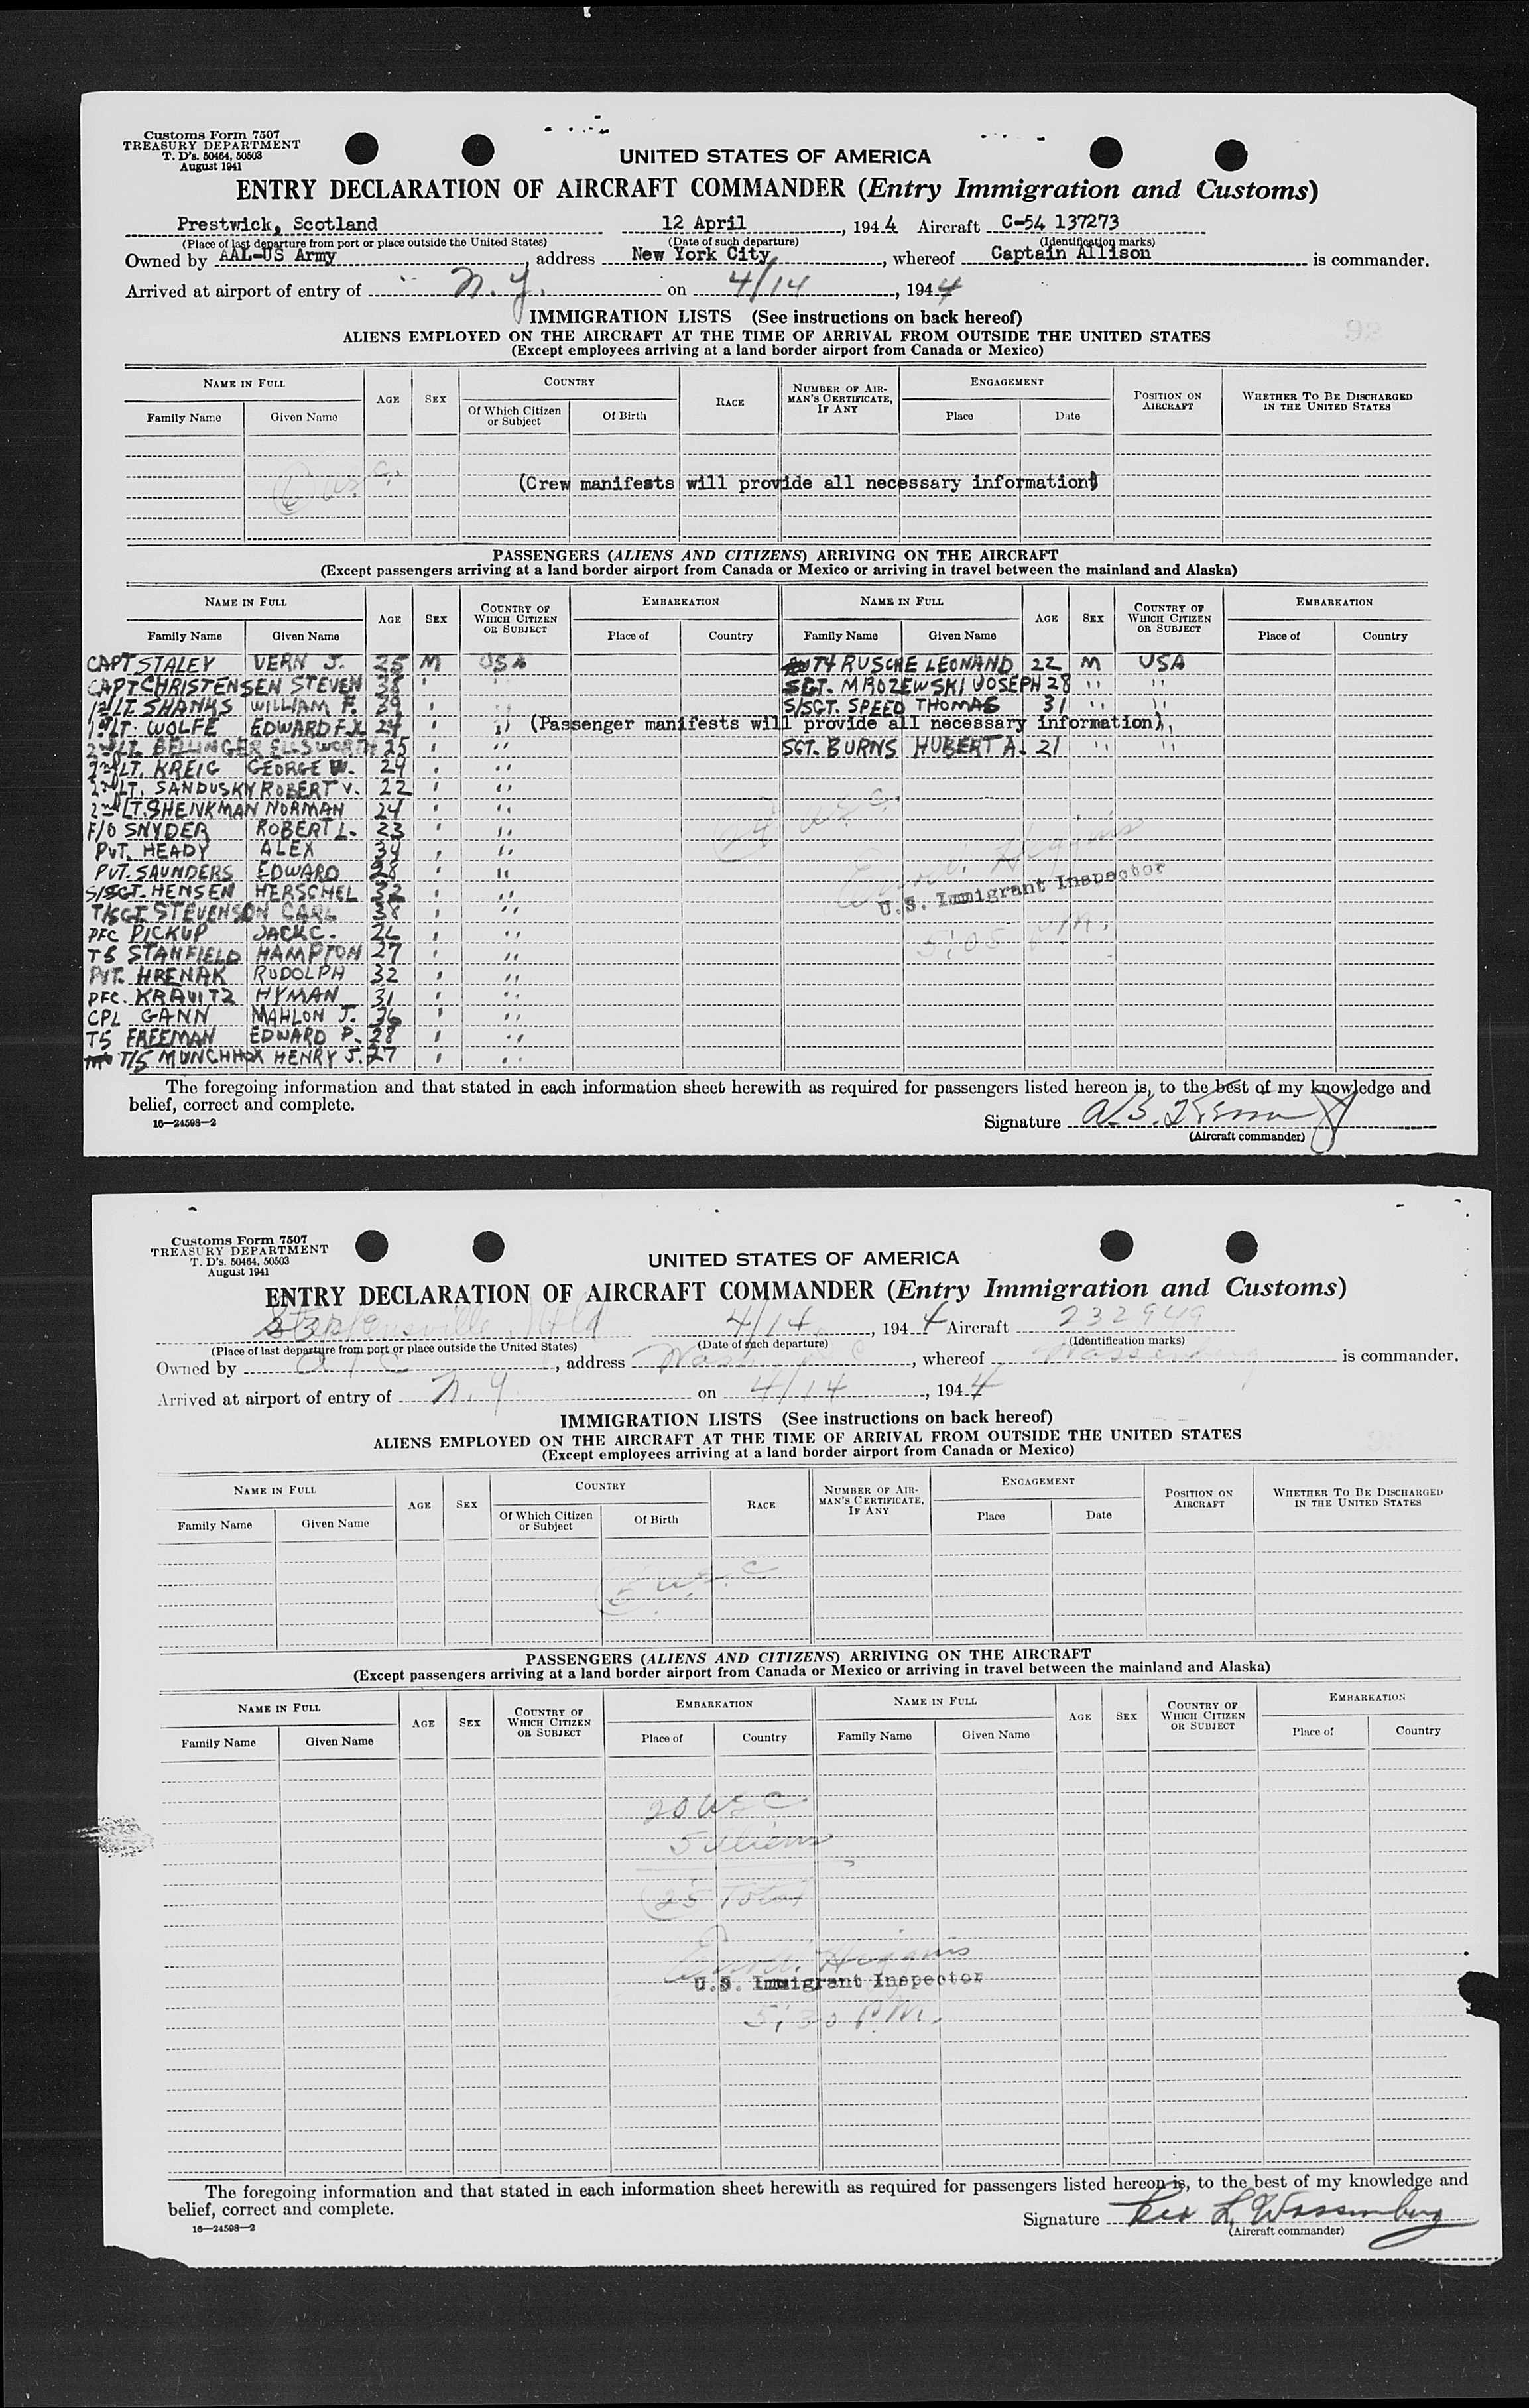 Customs Form 7507
TREASURY DEPARTMENT
T. D's. 50464, 50503
August 1941
UNITED STATES OF AMERICA
ENTRY DECLARATION OF AIRCRAFT COMMANDER (Entry Immigration and Customs)
Prestwick, Scotland 12 April, 1944 Aircraft C-54 137273
(Place of last departure from port or place outside the United States) (Date of such departure) (Identification marks)
Owned by AAL-US Army, address New York City, whereof Captain Allison is commander.
Arrived at airport of entry of N.Y. on 4/14, 1944
IMMIGRATION LISTS (See instructions on back hereof)
92
ALIENS EMPLOYED ON THE AIRCRAFT AT THE TIME OF ARRIVAL FROM OUTSIDE THE UNITED STATES
(Except employees arriving at a land border airport from Canada or Mexico)
NAME IN FULL AGE SEX COUNTRY RACE NUMBER OF AIRMAN'S CERTIFICATE, IF ANY ENGAGEMENT POSITION ON AIRCRAFT WHETHER TO BE DISCHARGED IN THE UNITED STATES
Family Name Given Name Of Which Citizen or Subject Of Birth Place Date
6 usc.
(Crew manifests will provide all necessary information)
PASSENGERS (ALIENS AND CITIZENS) ARRIVING ON THE AIRCRAFT
(Except passengers arriving at a land border airport from Canada or Mexico or arriving in travel between the mainland and Alaska)
NAME IN FULL AGE SEX COUNTRY OF WHICH CITIZEN OR SUBJECT EMBARKATION NAME IN FULL AGE SEX COUNTRY OF WHICH CITIZEN OR SUBJECT EMBARKATION
Family Name Given Name Place of Country Family Name Given Name Place of Country
CAPT STALEY VERN J. 25 M USA T4 RUSCHE LEONAND 22 M USA
CAPT CHRISTENSEN STEVEN 38 " " SGT. MROZEWSKI JOSEPH 28 " "
1st LT. SHANKS WILLIAM F. 39 " " S/SGT. SPEED THOMAS 31 " "
1st LT. WOLFE EDWARD F.X. 24 " " (Passenger manifests will provide all necessary information)
2nd LT. BELLINGER ELLSWORTH 25 " " SGT. BURNS HUBERT A. 21 " "
2nd LT. KREIG GEORGE W. 24 " "
2nd LT. SANDUSKY ROBERT V. 22 " "
2nd LT. SHENKMAN NORMAN 24 " "
F/O SNYDER ROBERT L. 23 " "
PVT. HEADY ALEX 34 " "
PVT. SAUNDERS EDWARD 28 " "
S/SGT. HENSEN HERSCHEL 32 " "
T/SGT STEVENSON CARL 38 " "
PFC PICKUP JACK C. 26 " "
T5 STANFIELD HAMPTON 27 " "
PVT. HRENAK RUDOLPH 32 " "
PFC. KRAVITZ HYMAN 31 " "
CPL GANN MAHLON J. 36 " "
T5 FREEMAN EDWARD P. 28 " "
T/5 MUNCHHOX HENRY J. 27 " "
24 usc.
Higgins
U.S. Immigrant Inspector
5:05 P.M.
The foregoing information and that stated in each information sheet herewith as required for passengers listed hereon is, to the best of my knowledge and
belief, correct and complete.
16—24598—2
Signature A.B.
(Aircraft commander)
Customs Form 7507
TREASURY DEPARTMENT
T. D's. 50464, 50503
August 1941
UNITED STATES OF AMERICA
ENTRY DECLARATION OF AIRCRAFT COMMANDER (Entry Immigration and Customs)
Stephensville, Nfld 4/14, 1944 Aircraft 232949
(Place of last departure from port or place outside the United States) (Date of such departure) (Identification marks)
Owned by ATC, address Wash, D C, whereof Wassenberg is commander.
Arrived at airport of entry of N.Y. on 4/14, 1944
IMMIGRATION LISTS (See instructions on back hereof)
ALIENS EMPLOYED ON THE AIRCRAFT AT THE TIME OF ARRIVAL FROM OUTSIDE THE UNITED STATES
(Except employees arriving at a land border airport from Canada or Mexico)
NAME IN FULL AGE SEX COUNTRY RACE NUMBER OF AIRMAN'S CERTIFICATE, IF ANY ENGAGEMENT POSITION ON AIRCRAFT WHETHER TO BE DISCHARGED IN THE UNITED STATES
Family Name Given Name Of Which Citizen or Subject Of Birth Place Date
5 usc
PASSENGERS (ALIENS AND CITIZENS) ARRIVING ON THE AIRCRAFT
(Except passengers arriving at a land border airport from Canada or Mexico or arriving in travel between the mainland and Alaska)
NAME IN FULL AGE SEX COUNTRY OF WHICH CITIZEN OR SUBJECT EMBARKATION NAME IN FULL AGE SEX COUNTRY OF WHICH CITIZEN OR SUBJECT EMBARKATION
Family Name Given Name Place of Country Family Name Given Name Place of Country
20 USC
5 aliens
25 Total
Higgins
U.S. Immigrant Inspector
5:30 P.M.
The foregoing information and that stated in each information sheet herewith as required for passengers listed hereon is, to the best of my knowledge and
belief, correct and complete.
16—24598—2
Signature Rex L. Wassenberg
(Aircraft commander)